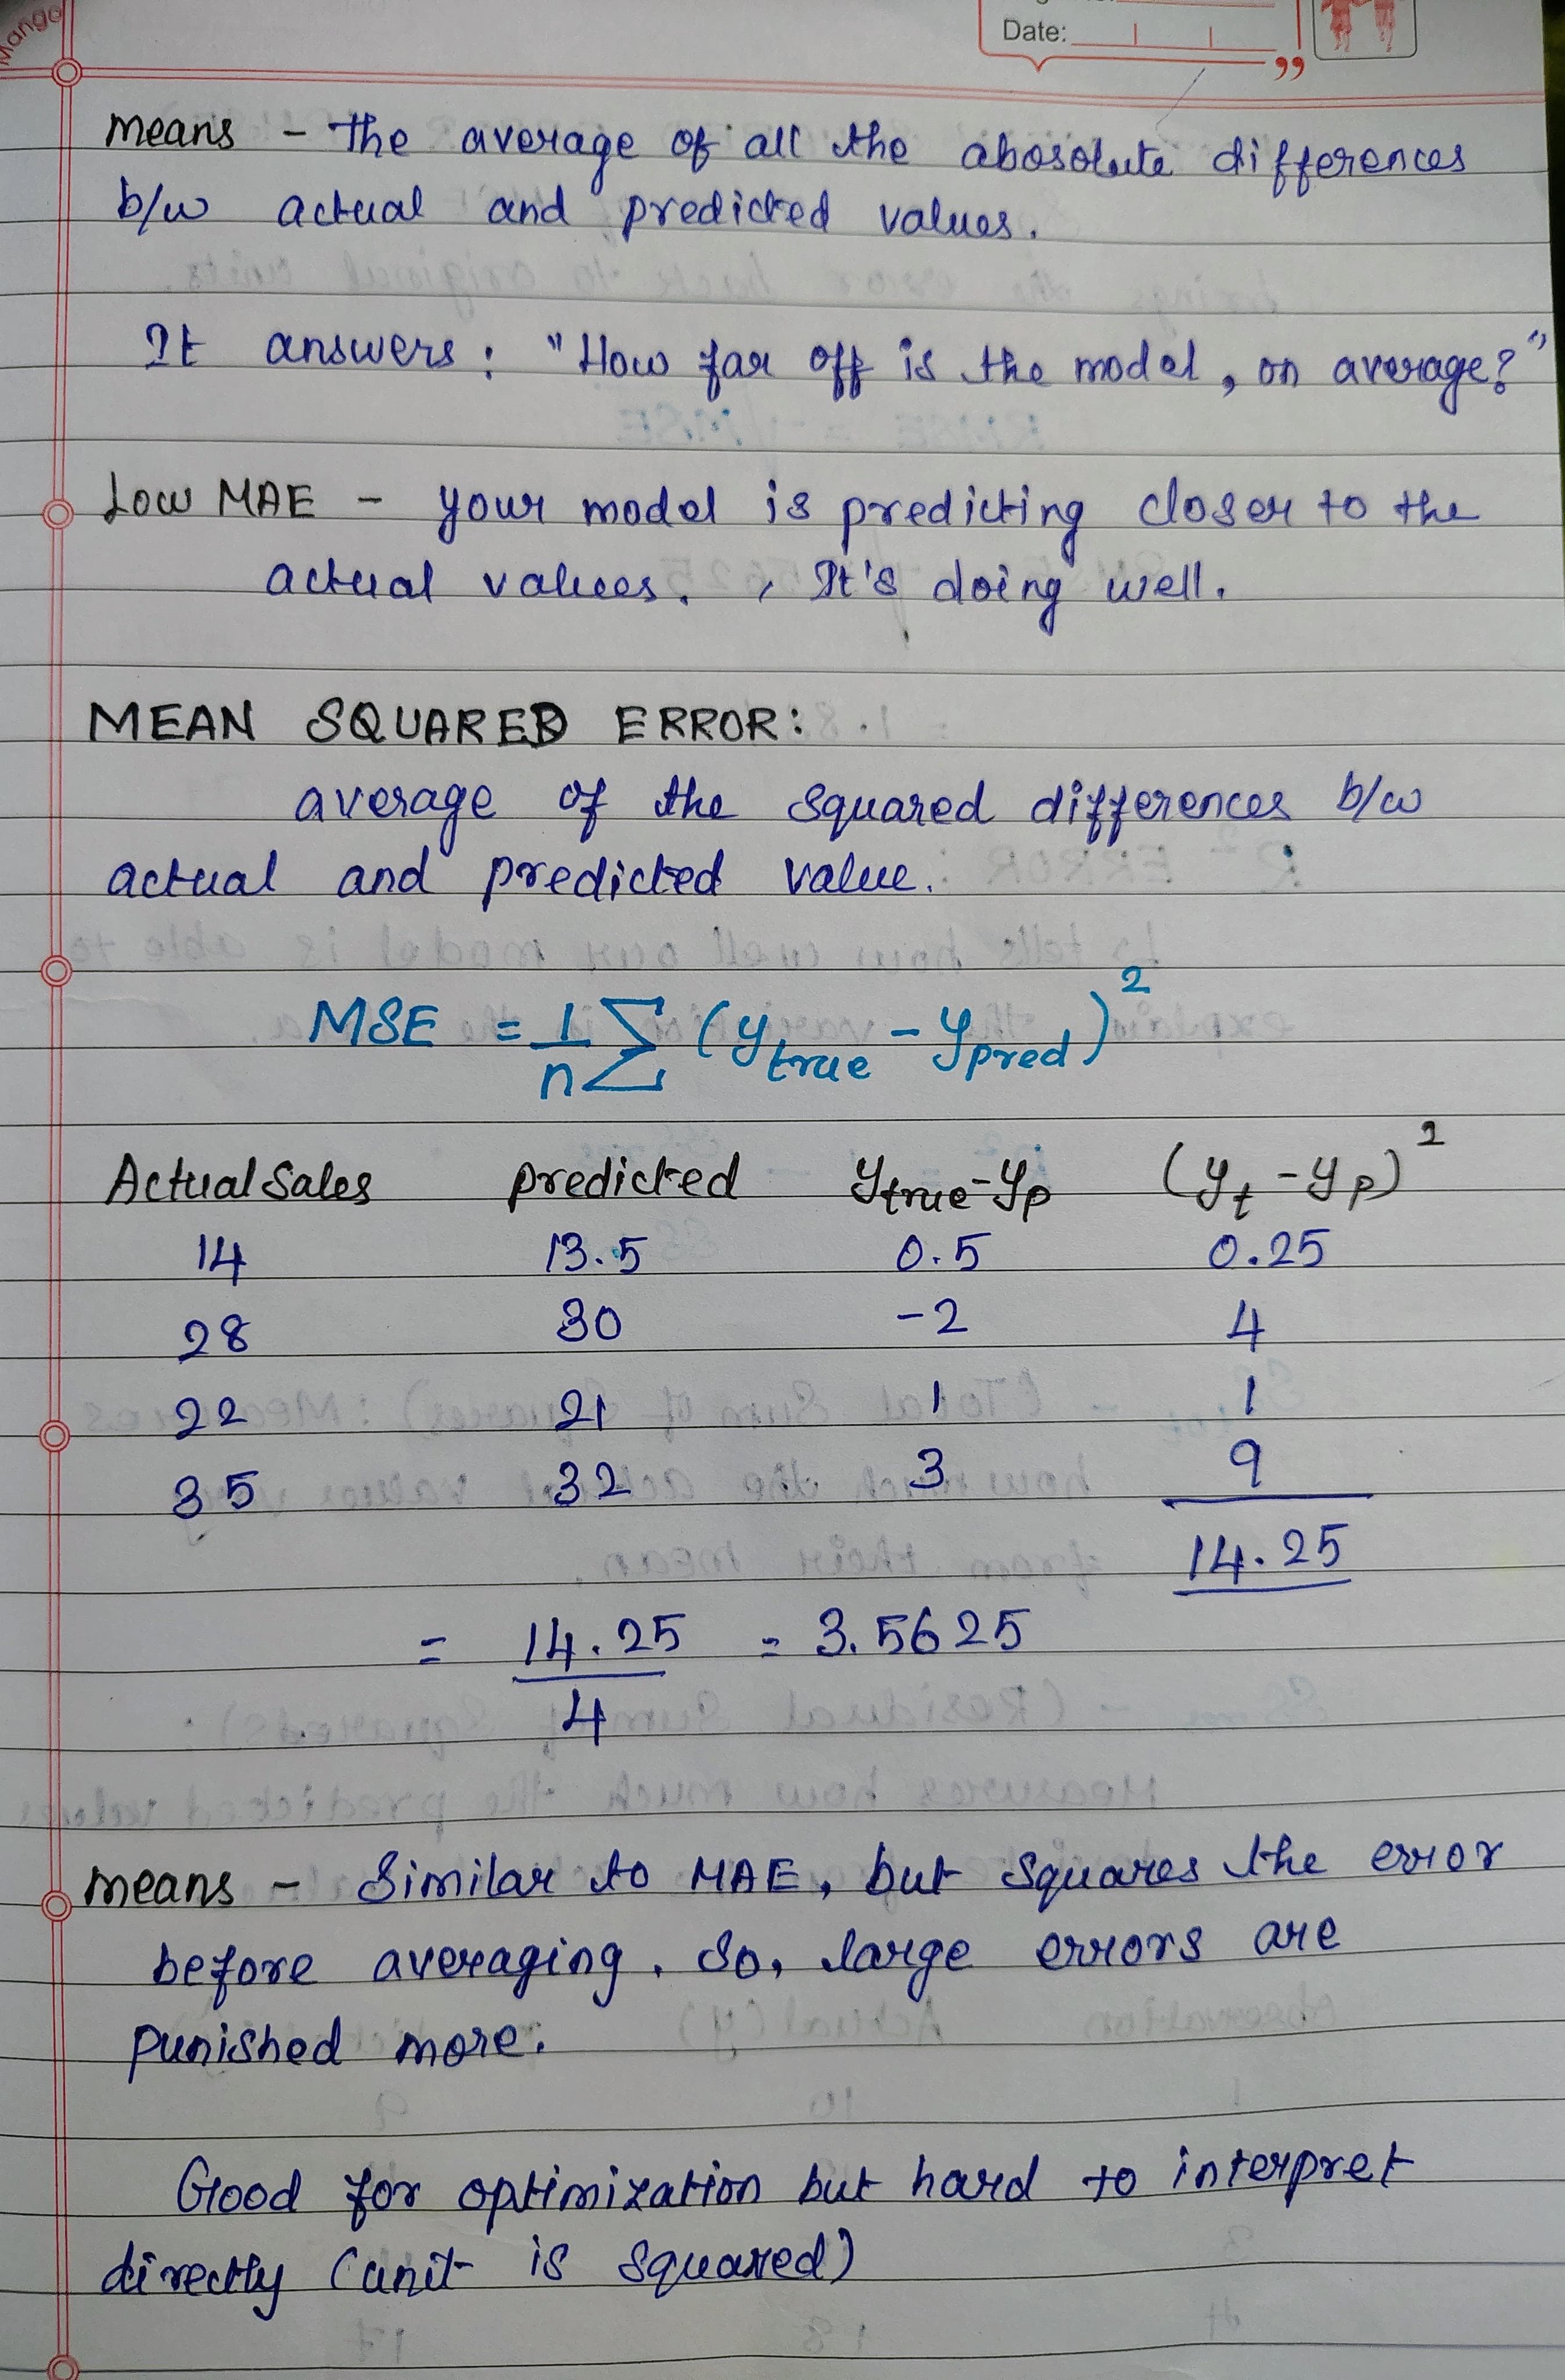 Mango
Date:
means - The average of all the abosolute differences
b/w actual and predicted values.
It answers: "How far off is the model, on average?"
Low MAE - your model is predicting closer to the
actual values. , It's doing well.
MEAN SQUARED ERROR:
average of the squared differences b/w
actual and predicted value.
MSE = 1/n ∑ (y_true - y_pred)²
Actual Sales predicted y_true - y_p (y_t - y_p)²
14 13.5 0.5 0.25
28 30 -2 4
22 21 1 1
35 32 3 9
14.25
= 14.25/4 = 3.5625
means - Similar to MAE, but squares the error
before averaging. So, large errors are
punished more.
Good for optimization but hard to interpret
directly (unit is squared)